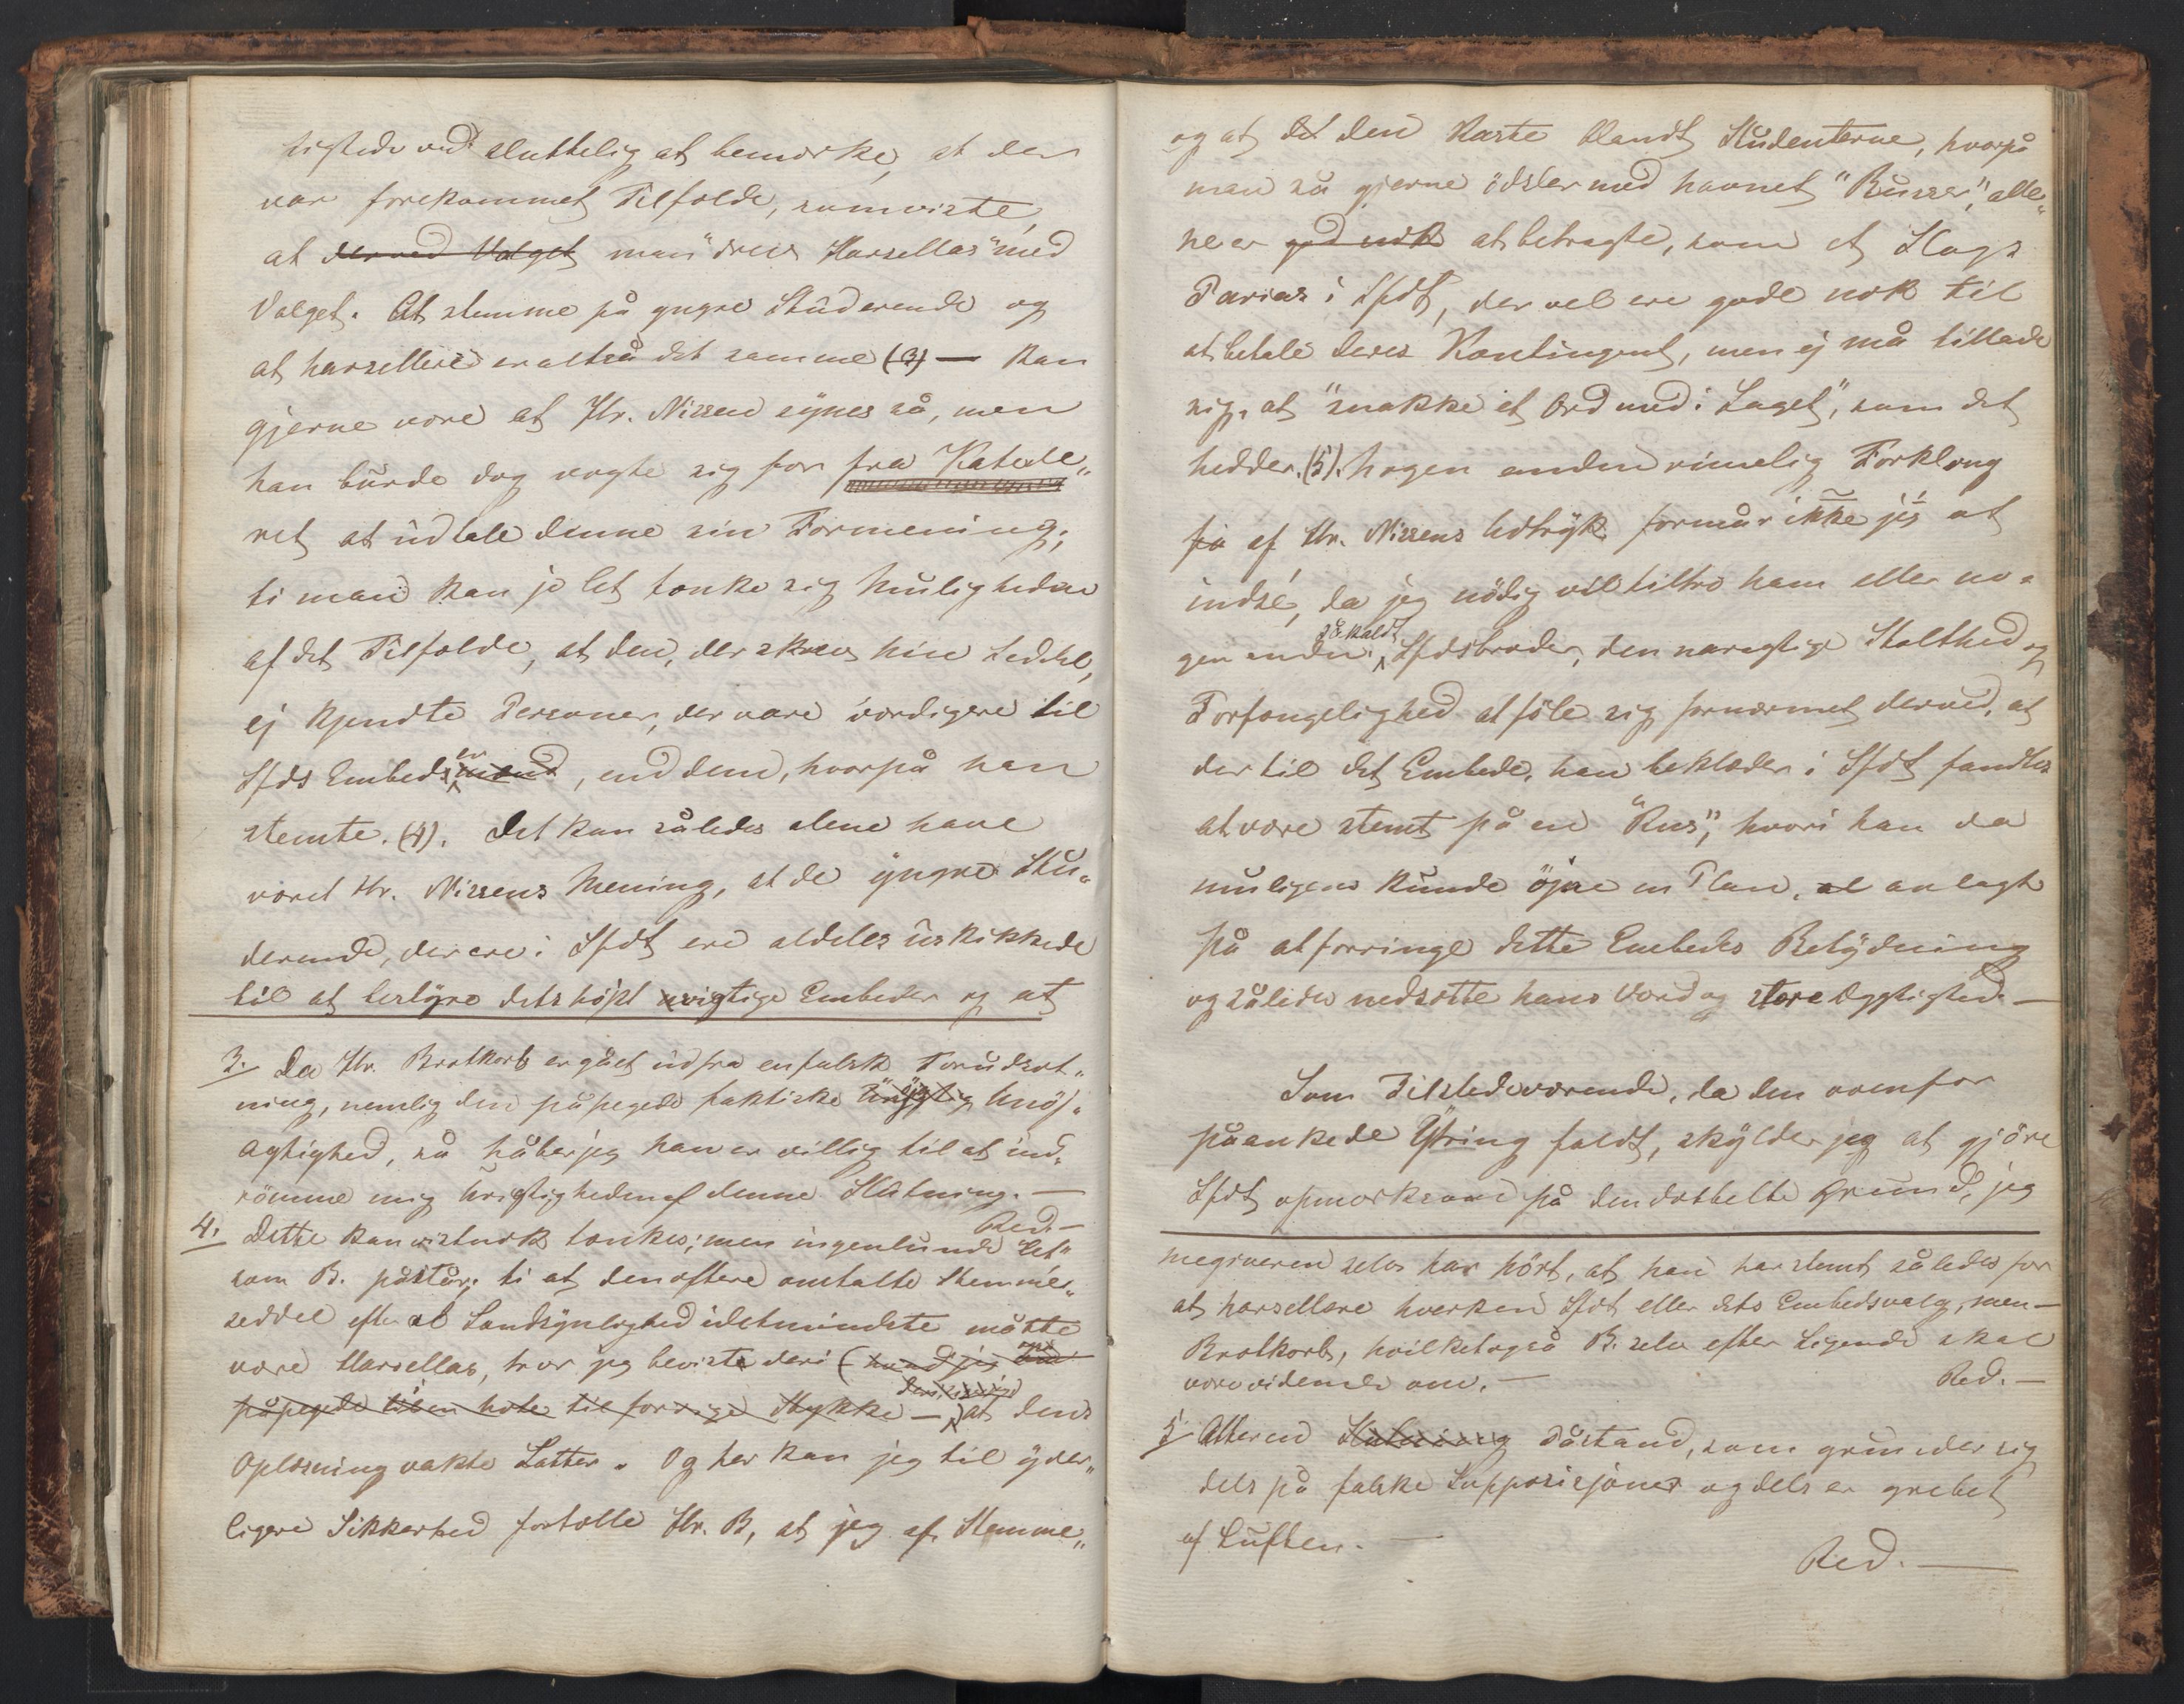 tigstedt ved sluttelig at bemærke, at der
var forekommet Tilfælde, som viste,
at derved Valget man "drev Harsellas" med
Valget. At stemme på yngre Studerende og
at harsellere er altså det samme (3) — Kan
gjerne være at Hr. Nissen synes så, men
han burde dog vogte sig for fra Katede„
ret at udtale denne sin Formening;
ti man kan jo let tænke sig Muligheden
af det Tilfælde, at den, der skrev hin Seddel,
ej kjendte Personer, der vare værdigere til
Sfds Embeder, end dem, hvorpå han
stemte. (4). Det kan således alene have
været Hr. Nissens Mening, at de yngre Stu„
derende, der ere i Sfdt ere aldeles uskikkede
til at bestyre dets höjst vigtige Embeder og at
3. Da Hr. Brotkorb er gået ud fra en falsk Forudsæt„
ning, nemlig den påpegede faktiske Unöj„
agtighed, så håber jeg han er villig til at ind„
römme mig Urigtigheden af denne Slutning. —
Red. —
4. Dette kan vistnok tænkes; men ingenlunde "let"
som B. påstår; ti at den oftere omtalte Stemme„
seddel efter al Sandsynlighed idetmindste måtte
være Harsellas, tror jeg beviste deri (hvad jeg
påpegede i en Note til forrige Stykke —) at dens
Oplæsning vakte Latter. Og her kan jeg til yder„
ligere Sikkerhed fortælle Hr. B, at jeg af Stemme„
og at det den Kaste blandt Studenterne, hvorpå
man så gjerne ödsler med Navnet "Russer", alle„
ne er god nok at betragte, som et Slags
Parias i Sfdt, der vel ere gode nok til
at betale deres Kontingent, men ej må tillade
sig, at "snakke et Ord med i Laget", som det
hedder. (5). Nogen anden rimelig Forklaring
på af Hr. Nissens Udtryk formår ikke jeg at
indse, da jeg nödig vil tiltro ham eller no„
så kaldt
gen anden Sfdsbroder, den naragtige Stolthed og
Forfængelighed at föle sig fornærmet derved, at
der til det Embede, han beklæder i Sfdt fandtes
at være stemt på en "Rus", hvori han da
muligens kunde öjne en Plan, al anlagt
på at forringe dette Embedes Betydning
og således nedsætte hans Værd og store Dygtighed. —
Som Tilstedeværende, da den ovenfor
påankede Ytring faldt, skylder jeg at gjöre
Sfdt opmærksom på den dobbelte Grund, jeg
megiveren selv har hört, at han har stemt således for
at harsellere hverken Sfdt eller dets Embedsvalg, men —
Brotkorb, hvilket også B. selv efter Sigende skal
være vidende om. —
Red. —
5. Atter en Slutning Påstand, som grunder sig
dels på falske Supposisjoner og dels er grebet
af Luften. —
Red. —